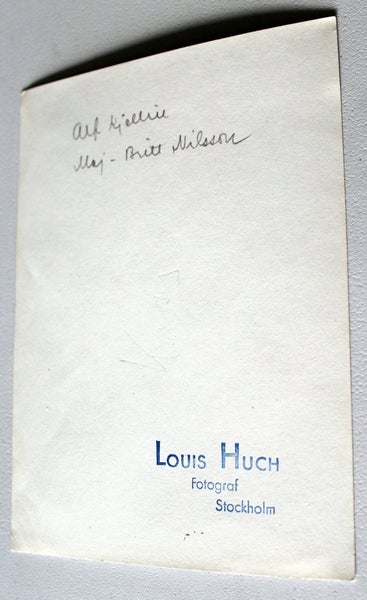 Alf Kjellin
Maj-Britt Nilsson
LOUIS HUCH
Fotograf
Stockholm